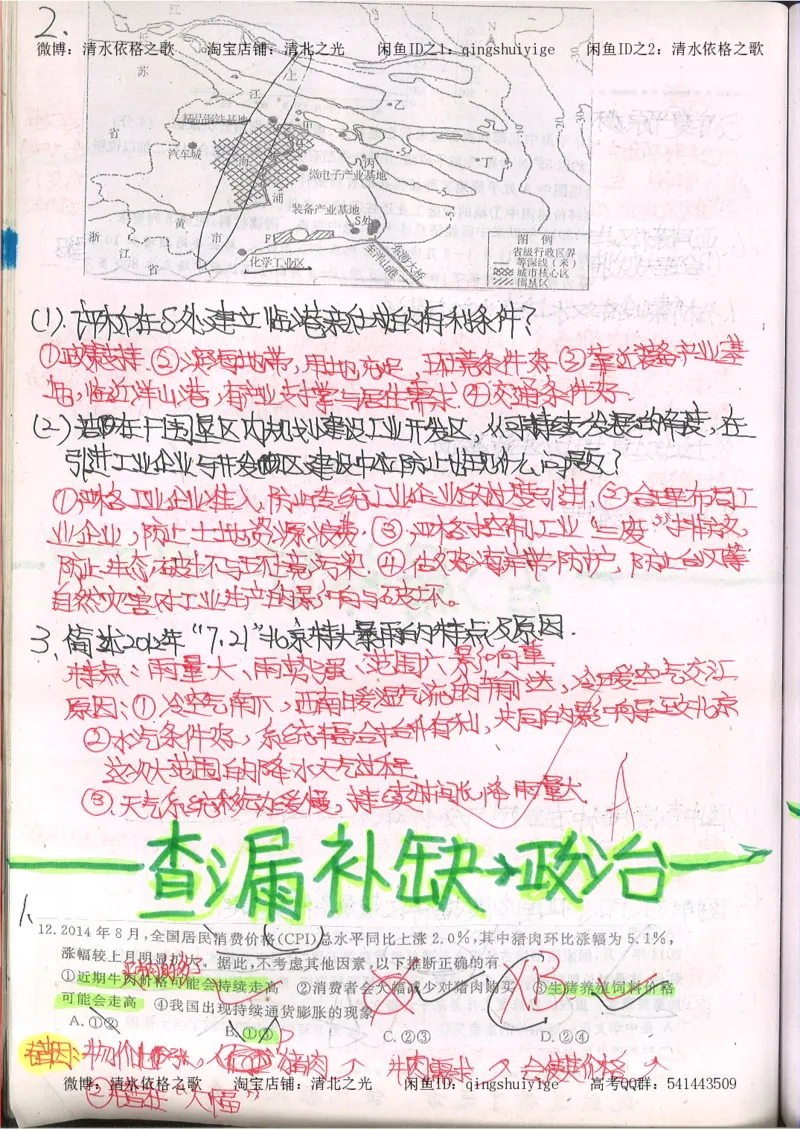 2.
微博：清水依格之歌 淘宝店铺：清北之光 闲鱼ID之1：qingshuiyige 闲鱼ID之2：清水依格之歌
江
苏
省
上
江
N
精品钢铁基地
汽车城
海
甲
乙
丙
丁
微电子产业基地
浦
装备产业基地
S处
黄
市
F
化学工业区
浙
江
省
东海大桥
至洋山港
图 例
省级行政区界
等深线(米)
城市核心区
围垦区
(1).评价在S处建立临港新住址的有利条件?
①政策支持.②沿海地带,用地充足,环境条件好.③靠近装备产业基
地,临近洋山港,有产业支撑与居住需求.④交通条件好.
(2)若在F围垦区内规划建设工业开发区,从可持续发展的角度,在
引进工业企业与开发区建设中应防止出现什么问题?
①严格工业企业准入,防止传统工业企业的过度引进.②合理布局工
业企业,防止土地资源浪费.③严格控制工业“三废”排放,
防止生态破坏与环境污染.④做好海岸带防护,防止台风等
自然灾害对工业生产的影响与破坏。
3、简述2012年“7.21”北京特大暴雨的特点及原因.
特点:雨量大、雨势强、范围广、影响重
原因:①冷空气南下,西南暖湿气流的输送,冷暖空气交汇
②水汽条件好,系统配合十分有利,共同的影响导致北京
这次大范围的降水天气过程
③.天气系统移动缓慢,持续时间长,降雨量大
查漏补缺→政治
1、
12.2014年8月,全国居民消费价格(CPI)总水平同比上涨2.0%,其中猪肉环比涨幅为5.1%,
涨幅较上月明显扩大。据此,不考虑其他因素,以下推断正确的有
①近期牛肉价格可能会持续走高 ②消费者会大幅减少对猪肉购买 ③生猪养殖饲料价格
可能会走高 ④我国出现持续通货膨胀的现象
A.①② B.①③ C.②③ D.②④
B
错因:物价上涨, 猪肉 牛肉需求↗会使其价格↗
②错在“大幅”
微博：清水依格之歌 淘宝店铺：清北之光 闲鱼ID：qingshuiyige 高考QQ群：541443509